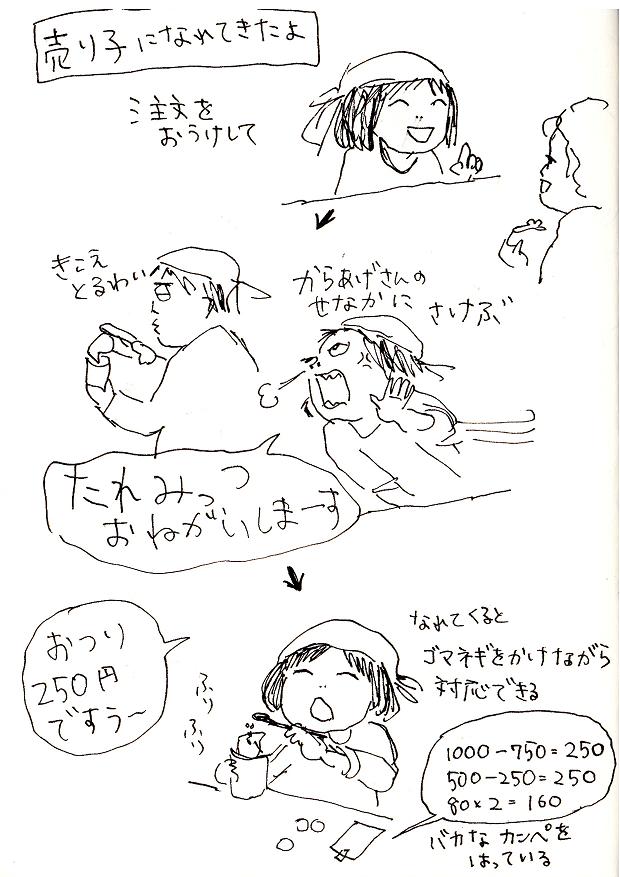 売り子になれてきたよ
注文を
おうけして
きこえ
とるわい
からあげさんの
せなかに
さけぶ
たれみっつ
おねがいしまーす
おつり
250円
ですぅ〜
ふり
ふり
なれてくると
ゴマネギをかけながら
対応できる
1000-750=250
500-250=250
80×2=160
バカなカンペを
はっている